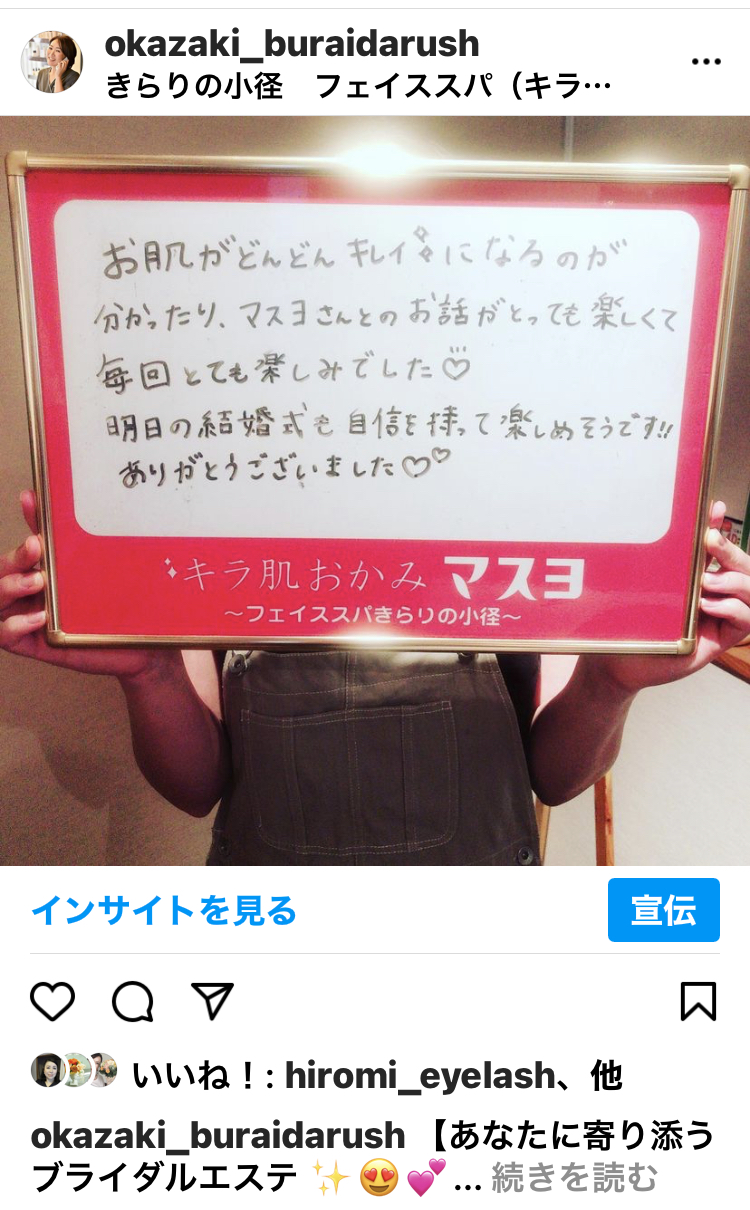 okazaki_buraidarush
きらりの小径　フェイススパ（キラ…
お肌がどんどんキレイになるのが
分かったり、マスヨさんとのお話がとっても楽しくて
毎回とても楽しみでした♡
明日の結婚式も自信を持って楽しめそうです!!
ありがとうございました♡♡
キラ肌おかみ マスヨ
〜フェイススパきらりの小径〜
インサイトを見る
宣伝
いいね！: hiromi_eyelash、他
okazaki_buraidarush 【あなたに寄り添う
ブライダルエステ ✨😍💕 ... 続きを読む